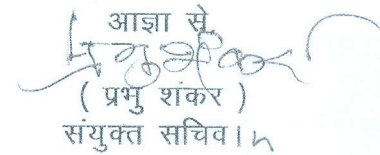 आज्ञा से
( प्रभु शंकर )
संयुक्त सचिव।